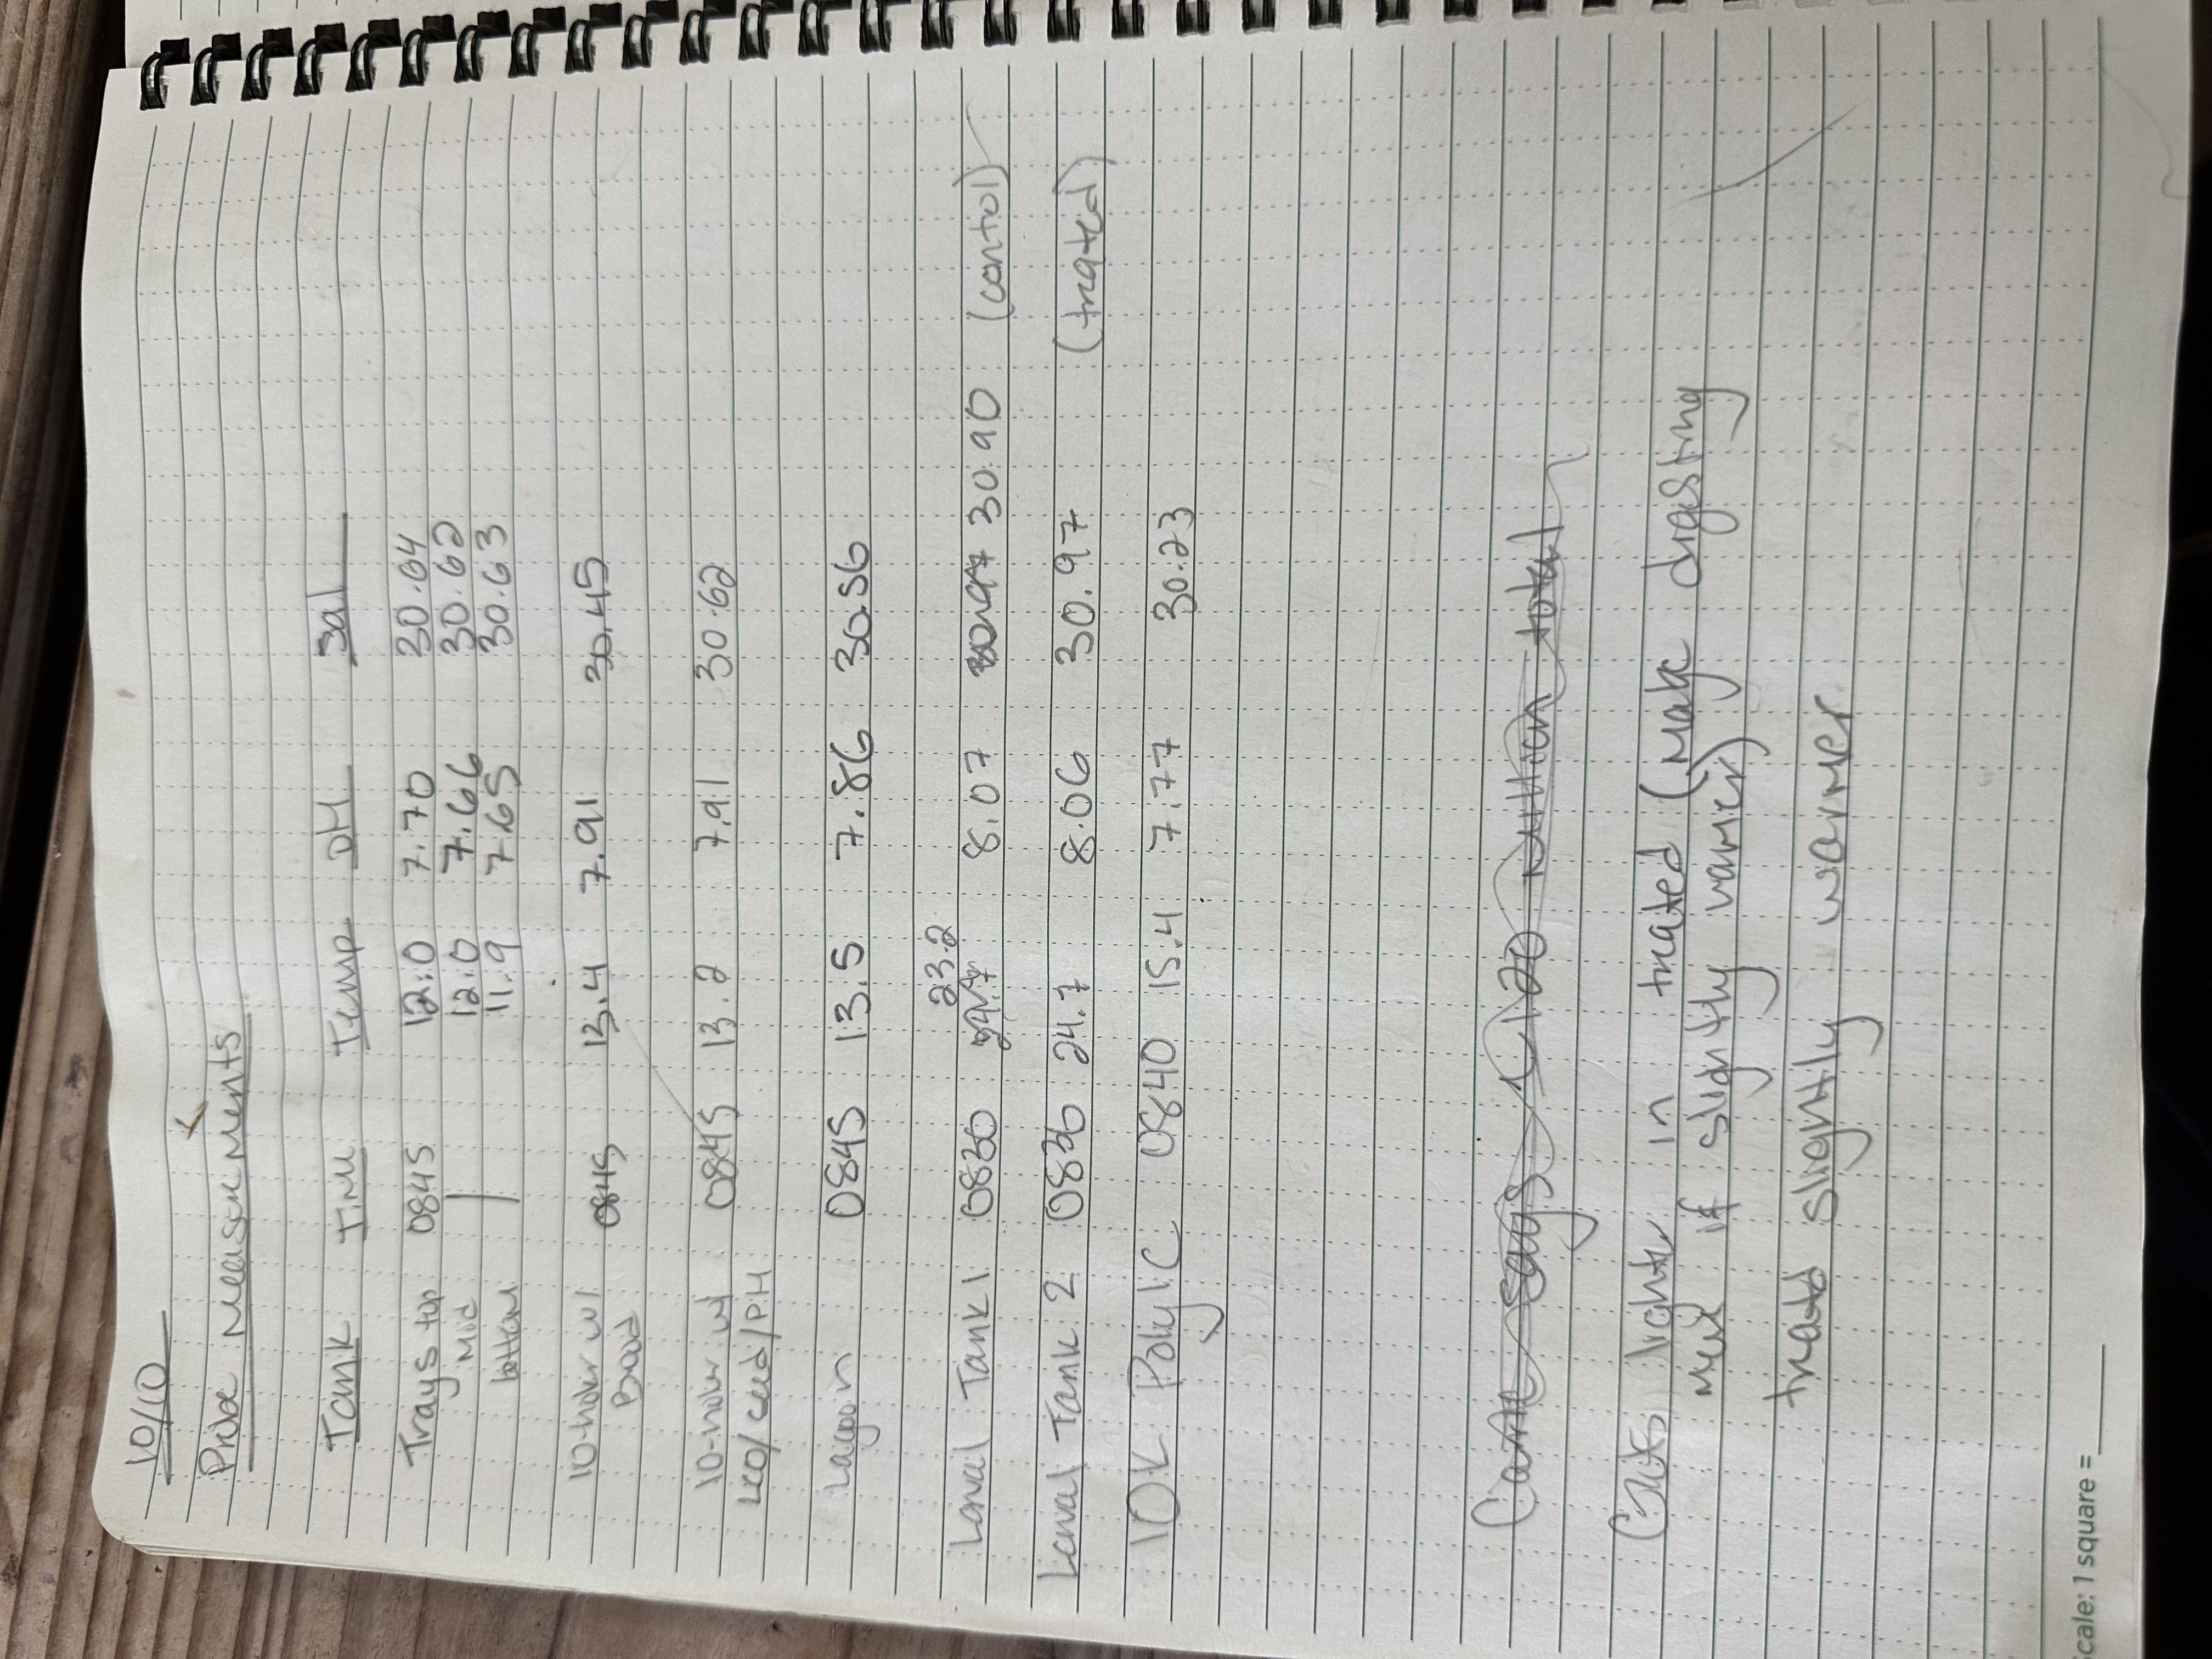 10/10
Probe Measurements
Tank Time Temp pH Sal
Trays top 0845 12.0 7.70 30.64
Mid 12.0 7.66 30.62
bottom 11.9 7.65 30.63
10-holer w/ 0845 13.4 7.91 30.45
Brood
10-holer w/ 0845 13.2 7.91 30.62
LCO/seed/PH
Lagoon 0845 13.5 7.86 30.56
23.2
Larval Tank 1 0830 24.7 8.07 30.97 30.90 (control)
Larval Tank 2 0836 24.7 8.06 30.97 (treated)
10K Poly IC 0840 15.4 7.77 30.23
says 120 million total
Guts lighter in treated (maybe digesting
more if slightly warmer)
treated slightly warmer
Scale: 1 square =